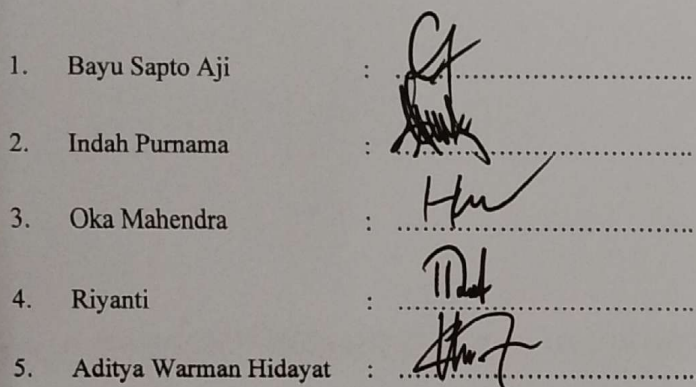 1. Bayu Sapto Aji : ........................................
2. Indah Purnama : ........................................
3. Oka Mahendra : ........................................
4. Riyanti : ........................................
5. Aditya Warman Hidayat : ........................................